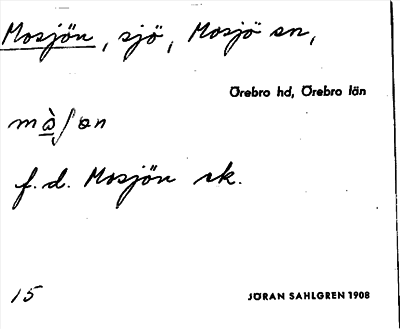 Mosjön, sjö, Mosjö sn,
Örebro hd, Örebro län
f. d. Mosjön sk.
15
JÖRAN SAHLGREN 1908